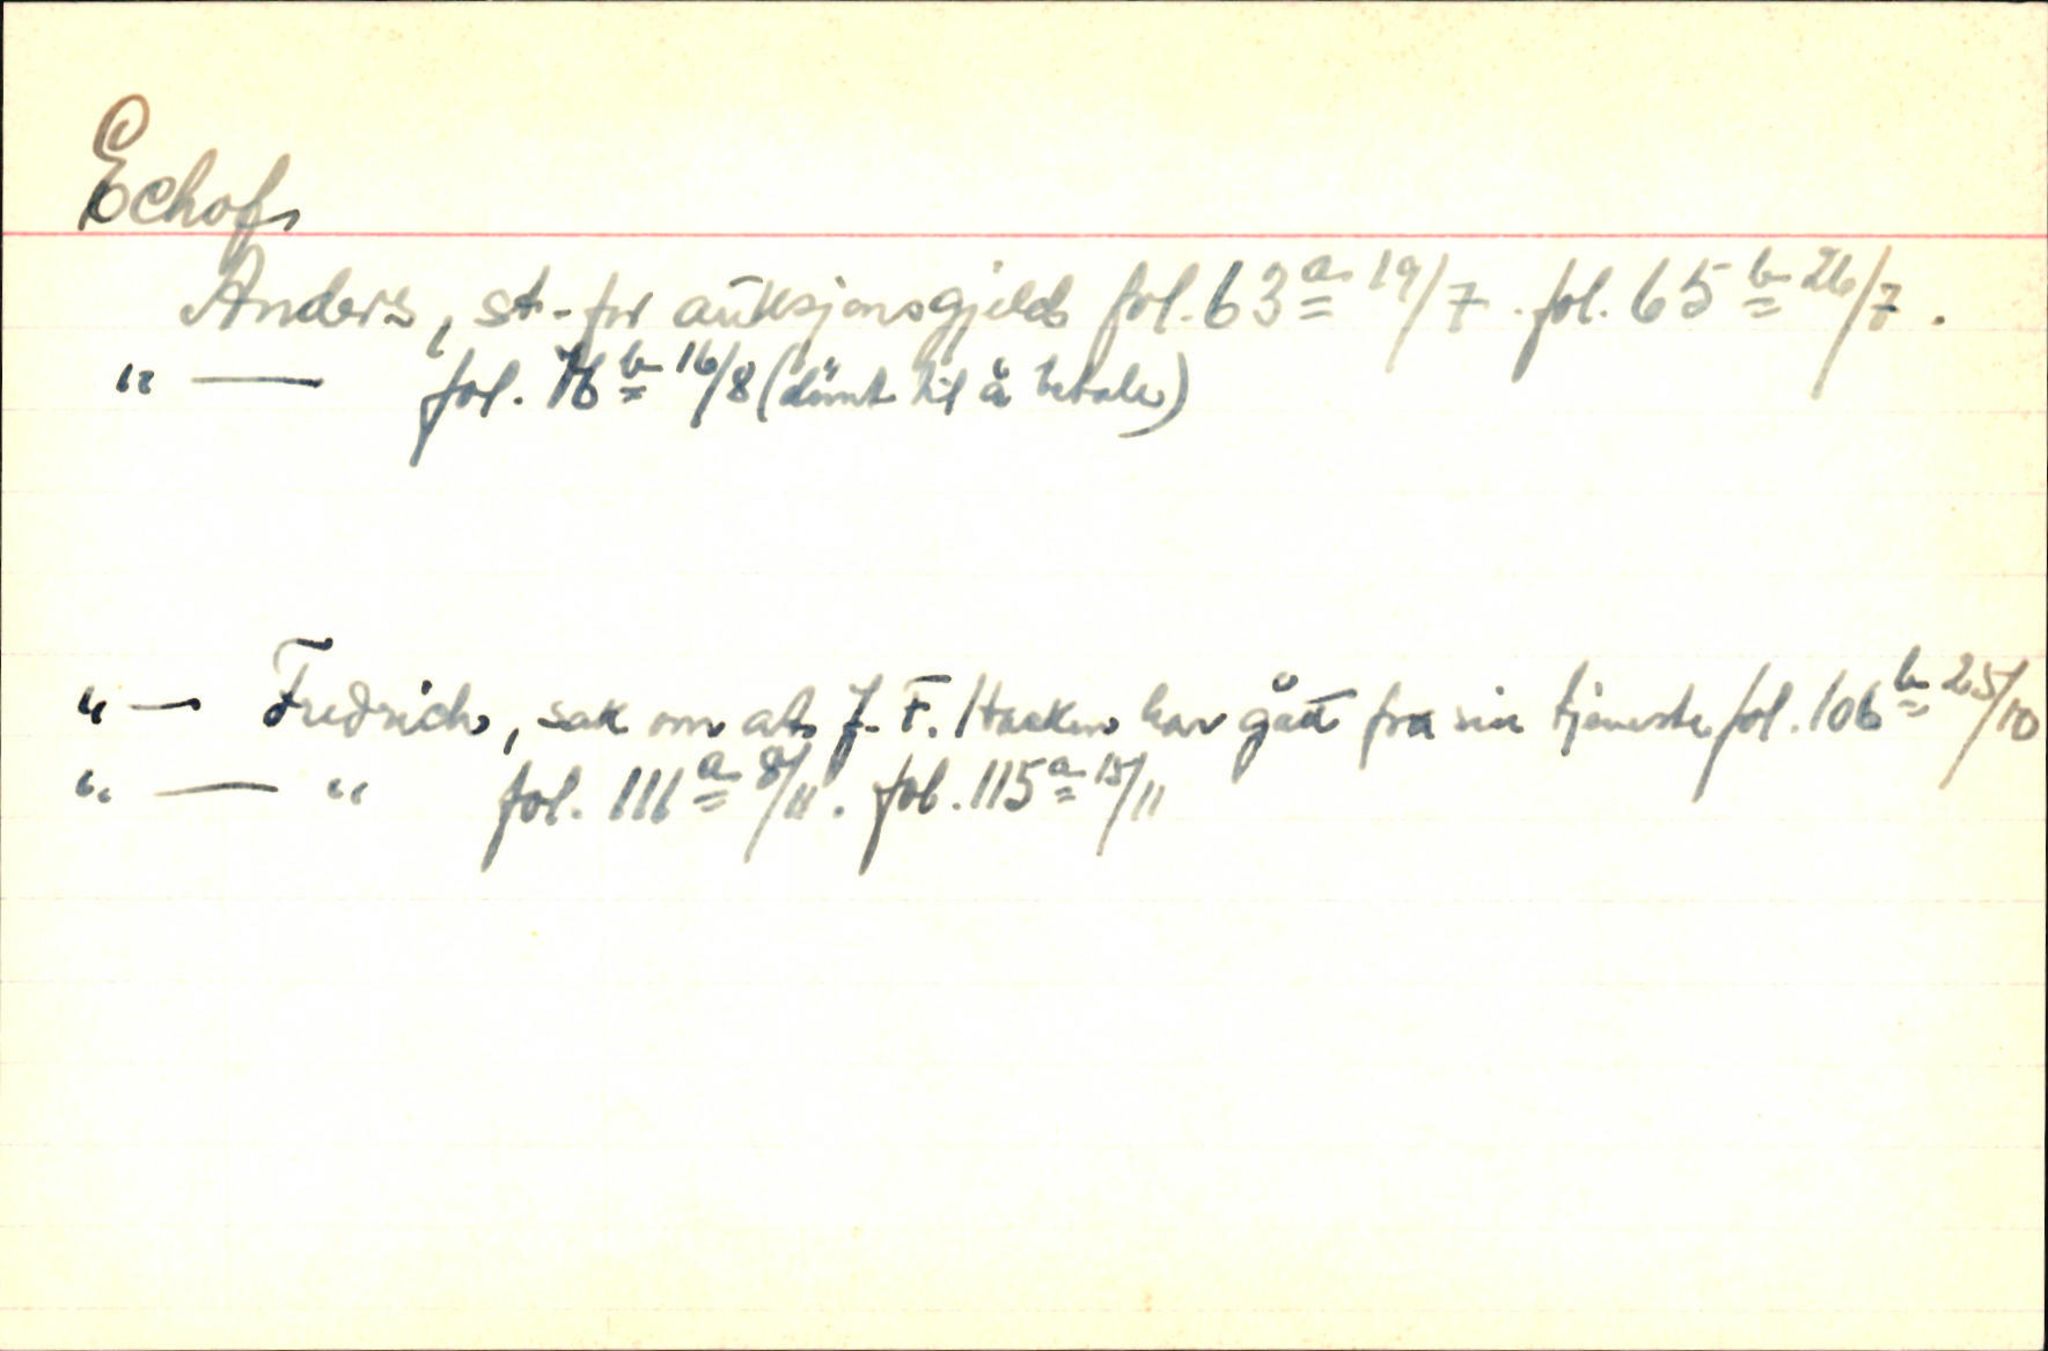 Echof
Anders, st. for auksjonsgjeld fol. 63 a 19/7. fol. 65 b 26/7.
" — fol. 76 b 16/8 (dömt til å betale)
" — Fredrich, sak om at J. F. Hacken har gått fra sin tjeneste fol. 106 b 25/10
" — " fol. 111 a 8/11. fol. 115 a 15/11